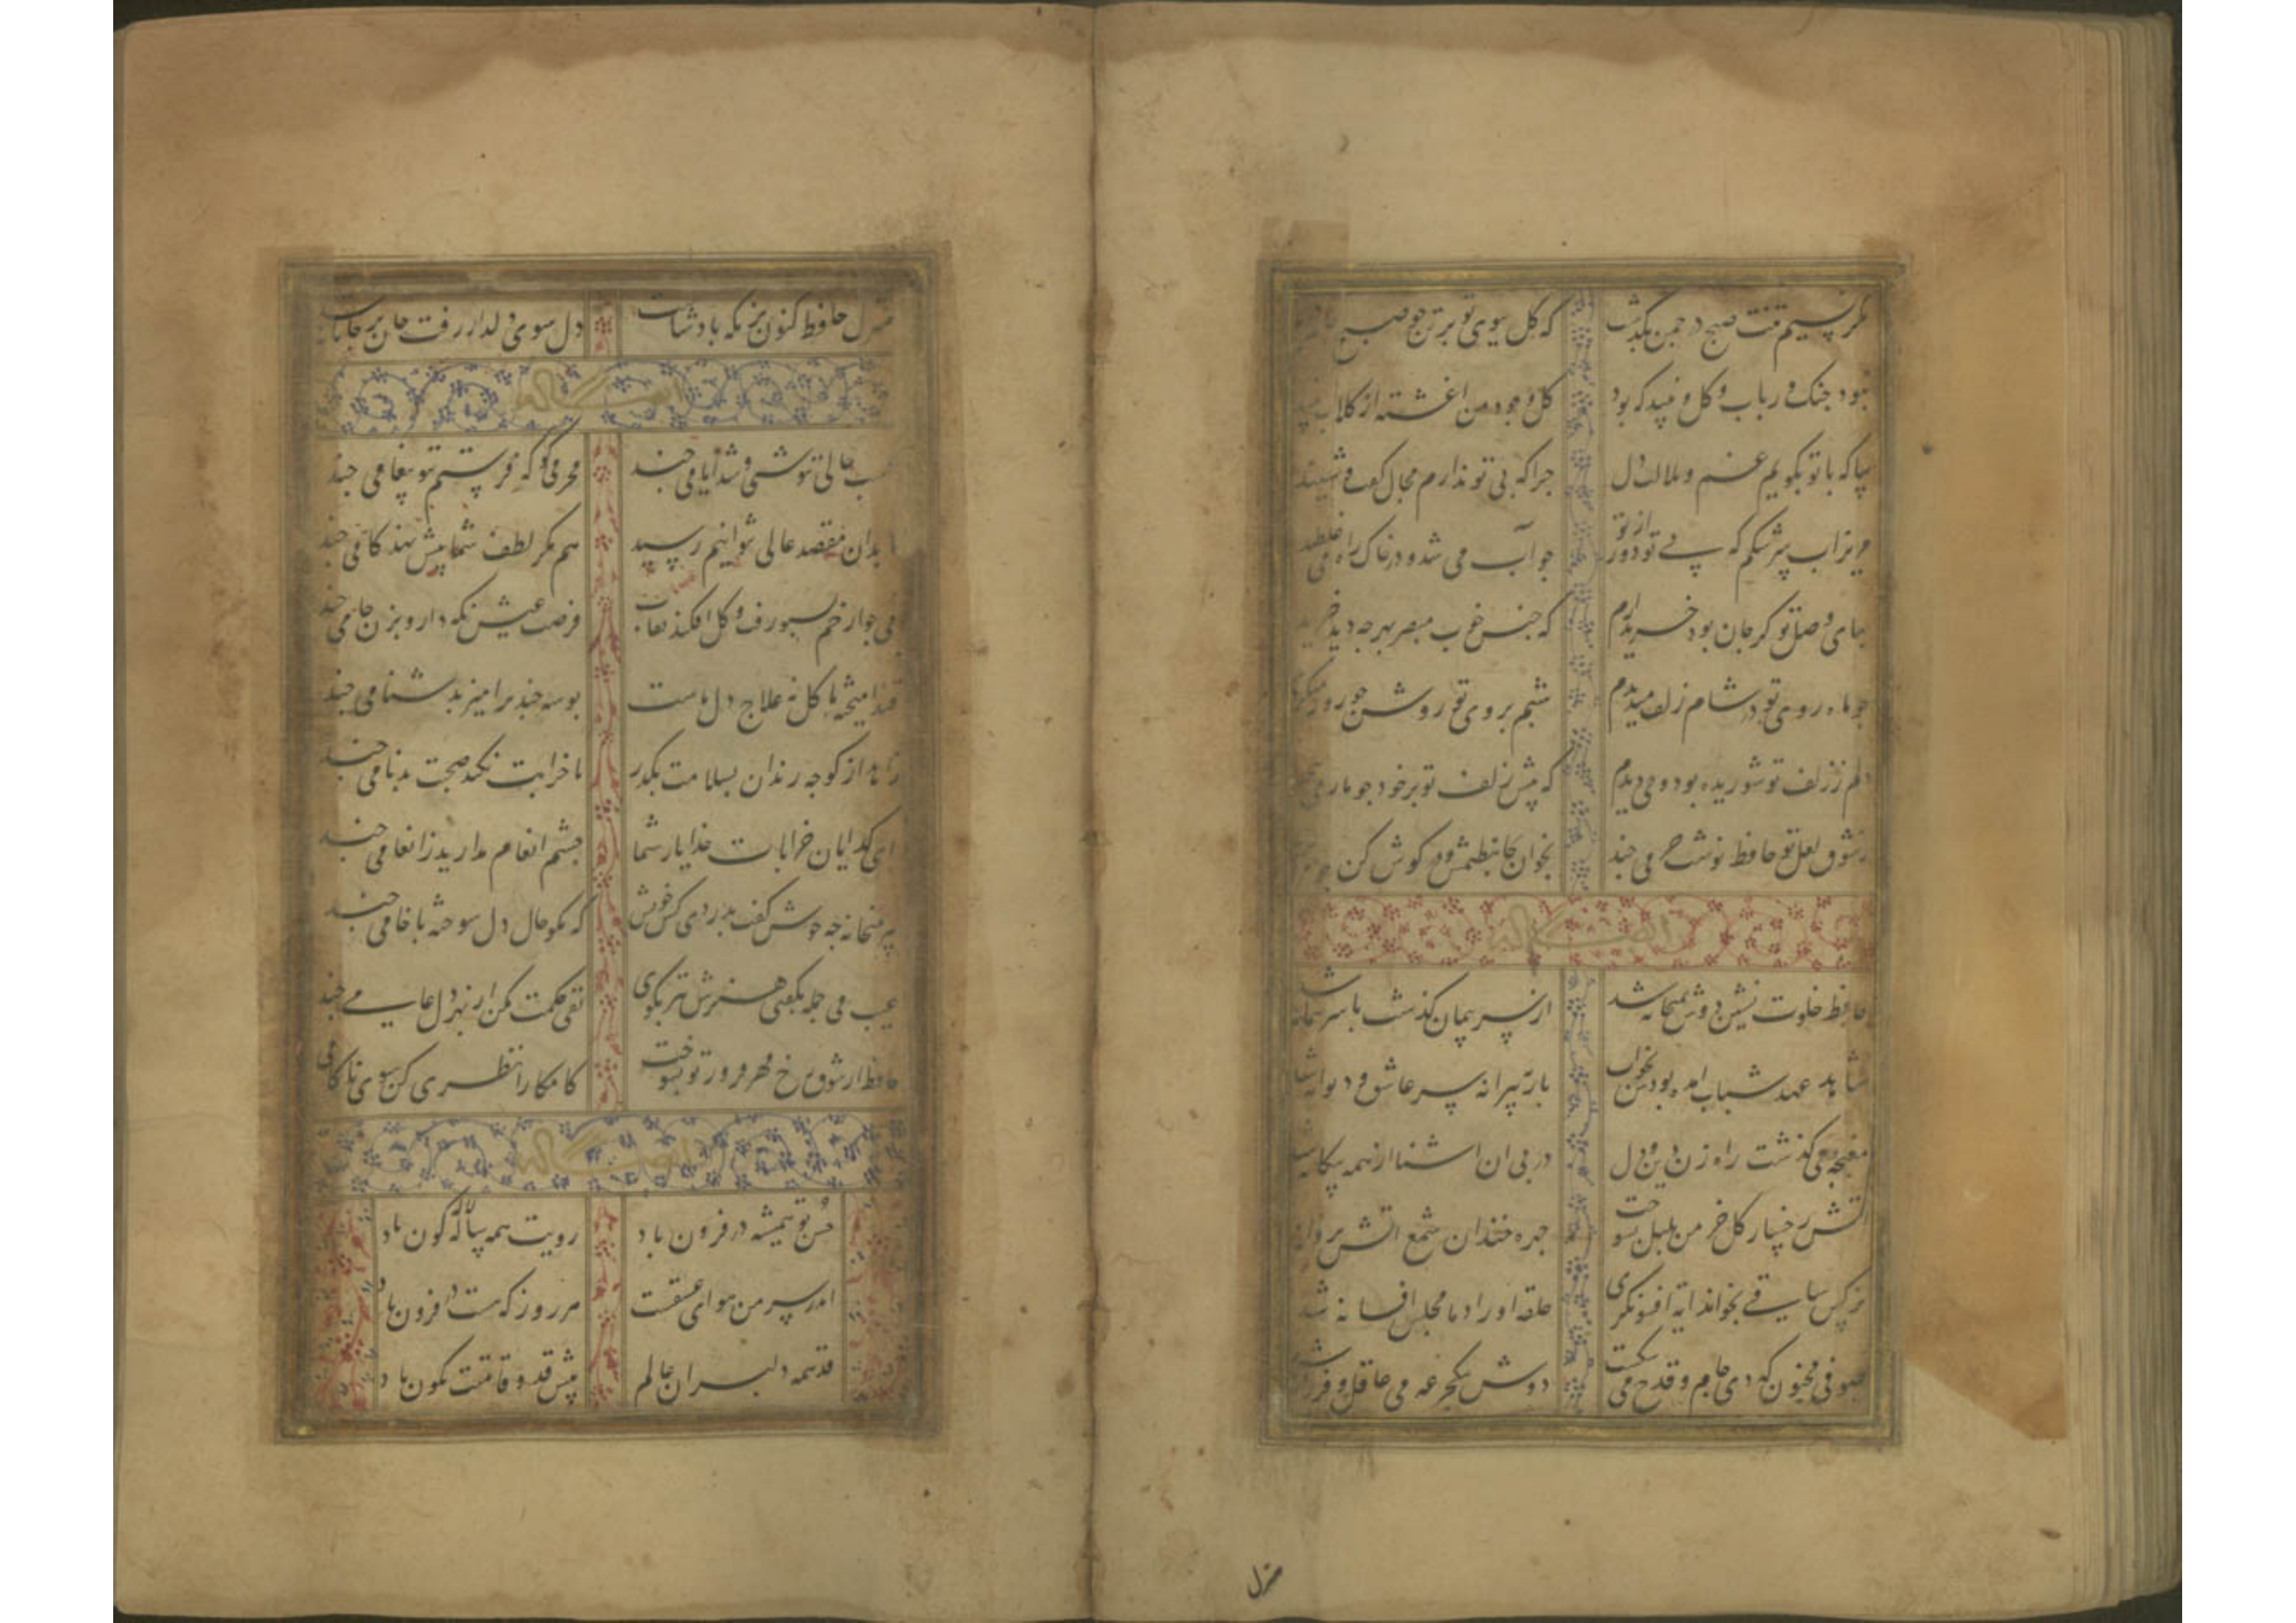 مکر نسیم تنت صبح در چمن بگذشت که گل ببوی تو بر تن چو صبح جامه
نبود چنک و رباب و کل و نبید که بود کل وجود من اغشته از کلاب
بیا که با تو بگویم غم و ملالت دل چرا که بی تو ندارم مجال کفت و شنید
مریز اب سرشکم که بی تو دور از تو چو آب می شد و در خاک راه می غلطید
بهای وصل تو کر جان بود خریدارم که جنس خوب مبصر بهر چه دید خرید
چو ماه روی تو در شام زلف میدیدم شبم بروی تو روشن چو روز
دلم ز زلف تو شوریده بود و می دیدم که پیش زلف تو بر خود چو مار می
بشوق لعل تو حافظ نوشت حرفی چند بخوان تو نظمش و در کوش کن چو
حافظ خلوت نشین دوش بمیخانه شد از سر پیمان گذشت با سر پیمانه
شاهد عهد شباب امده بودش بخواب باز به پیرانه سر عاشق و دیوانه شد
مغبچه می گذشت راه زن دین و دل در پی ان اشنا از همه بیکانه شد
اتش رخسار کل خرمن بلبل بسوخت چهره خندان شمع اتش پروانه
نرکس ساقی بخواند ایه افسونکری حلقه اوراد ما مجلس افسانه شد
صوفی مجنون که دی جام و قدح می شکست دوش بیک جرعه می عاقل و فرزانه شد
منزل
منزل حافظ کنون بزمکه پادشاست دل سوی دلدار رفت جان بر جانانه
حسب حالی ننوشتی و شد ایامی چند محرمی کو که فرستم بتو پیغامی چند
ما بدان مقصد عالی نتوانیم رسید هم مکر لطف شما پیش نهد کامی چند
می چو از خم بسبو رفت و کل افکند نقاب فرصت عیش نکه دار و بزن جامی چند
قند امیخته با کل نه علاج دل ماست بوسه چند بر امیز بدشنامی چند
زاهد از کوچه رندان بسلامت بکذر تا خرابت نکند صحبت بدنامی چند
ای کدایان خرابات خدا یار شما چشم انعام مدارید ز انعامی چند
پیر میخانه چه خوش کفت بدردی کش خویش که مکو حال دل سوخته با خامی چند
عیب می جمله بکفتی هنرش نیز بکوی نفی حکمت مکن از بهر دل عامی چند
حافظ از شوق رخ مهر فروز تو بسوخت کامکارا نظری کن سوی ناکامی
حسن تو همیشه در فزون باد رویت همه ساله لاله کون باد
اندر سر من هوای عشقت هر روز که هست در فزون باد
قد همه دلبران عالم پیش قد و قامتت نکون باد